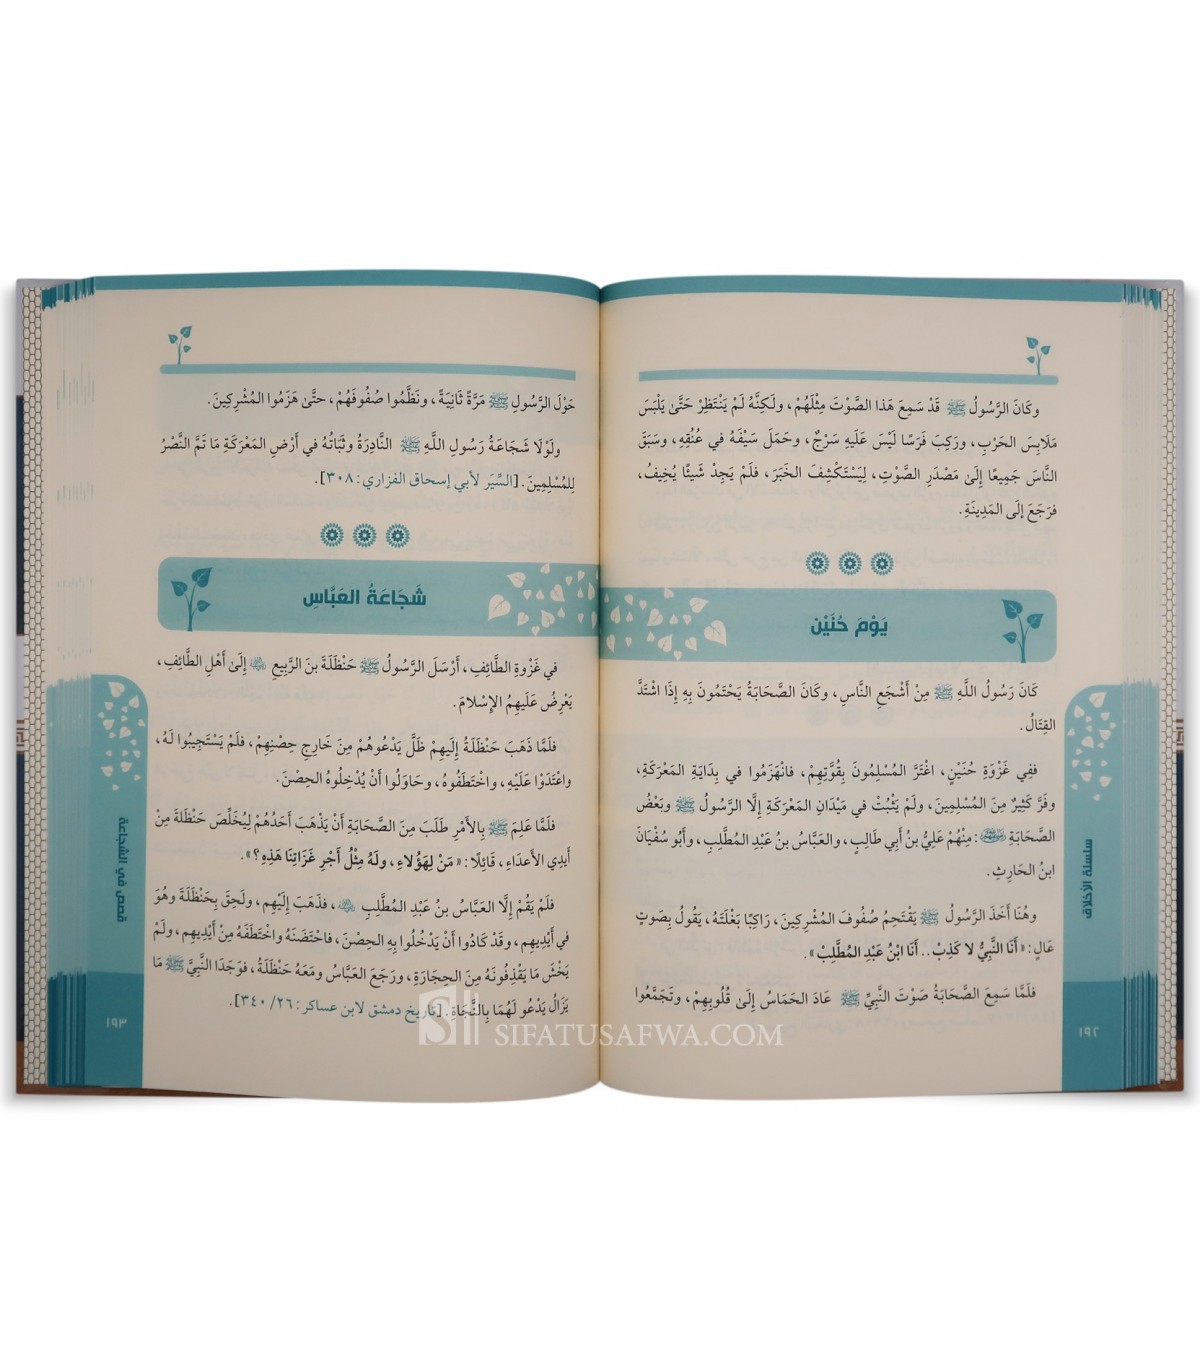 وكَانَ الرَّسُولُ ﷺ قَدْ سَمِعَ هَذا الصَّوْتَ مِثْلَهُمْ، ولَكِنَّهُ لَمْ يَنْتَظِرْ حَتَّىٰ يَلْبَسَ
مَلَابِسَ الحَرْبِ، ورَكِبَ فَرَسًا لَيْسَ عَلَيهِ سَرْجٌ، وحَمَلَ سَيْفَهُ في عُنُقِهِ، وسَبَقَ
النَّاسَ جَمِيعًا إِلَىٰ مَصْدَرِ الصَّوْتِ، لِيَسْتَكْشِفَ الخَبَرَ، فلَمْ يَجِدْ شَيئًا يُخِيفُ،
فرَجَعَ إلَى المَدِينَةِ.
يَوْمَ حُنَيْن
كَانَ رَسُولُ اللَّهِ ﷺ مِنْ أَشْجَعِ النَّاسِ، وكَانَ الصَّحَابَةُ يَحْتَمُونَ بِهِ إِذَا اشْتَدَّ
القِتَالُ.
ففِي غَزْوَةِ حُنَيْنٍ، اغْتَرَّ المُسْلِمُونَ بِقُوَّتِهِمْ، فانْهَزَمُوا في بِدَايَةِ المَعْرَكَةِ،
وفَرَّ كَثِيرٌ مِنَ المُسْلِمِينَ، ولَمْ يَثْبُتْ في مَيْدَانِ المَعْرَكَةِ إِلَّا الرَّسُولُ ﷺ وبَعْضُ
الصَّحَابَةِ رضي الله عنهم: مِنْهُمْ عَلِيُّ بنُ أَبي طَالِبٍ، والعَبَّاسُ بنُ عَبْدِ المُطَّلِبِ، وأَبُو سُفْيَانَ
ابنُ الحَارِثِ.
وهُنَا أَخَذَ الرَّسُولُ ﷺ يَقْتَحِمُ صُفُوفَ المُشْرِكِينَ، رَاكِبًا بَغْلَتَهُ، يَقُولُ بِصَوتٍ
عَالٍ: «أَنَا النَّبِيُّ لا كَذِبْ.. أَنَا ابْنُ عَبْدِ المُطَّلِبْ».
فلَمَّا سَمِعَ الصَّحَابَةُ صَوْتَ النَّبِيِّ ﷺ عَادَ الحَمَاسُ إِلَىٰ قُلُوبِهِمْ، وتَجَمَّعُوا
سلسلة الأخلاق
١٩٢
حَوْلَ الرَّسُولِ ﷺ مَرَّةً ثَانِيَةً، ونَظَّمُوا صُفُوفَهُمْ، حتَّىٰ هَزَمُوا المُشْرِكِينَ.
ولَوْلَا شَجَاعَةُ رَسُولِ اللَّهِ ﷺ النَّادِرَةُ وثَبَاتُهُ في أَرْضِ المَعْرَكَةِ مَا تَمَّ النَّصْرُ
لِلمُسْلِمِينَ. [السِّيَر لأبي إسحاق الفزاري: ٣٠٨].
شَجَاعَةُ العَبَّاسِ
في غَزْوةِ الطَّائِفِ، أَرْسَلَ الرَّسُولُ ﷺ حَنْظَلَةَ بنَ الرَّبِيعِ رضي الله عنه إِلَىٰ أَهْلِ الطَّائِفِ،
يَعْرِضُ عَلَيهِمُ الإِسْلامَ.
فلَمَّا ذَهَبَ حَنْظَلَةُ إِلَيهِمْ ظَلَّ يَدْعُوهُمْ مِنَ خَارِجِ حِصْنِهِمْ، فلَمْ يَسْتَجِيبُوا لَهُ،
واعْتَدَوْا عَلَيْهِ، واخْتَطَفُوهُ، وحَاوَلُوا أَنْ يُدْخِلُوهُ الحِصْنَ.
فلَمَّا عَلِمَ ﷺ بِالأَمْرِ طَلَبَ مِنَ الصَّحَابَةِ أَنْ يَذْهَبَ أَحَدُهُمْ لِيُخَلِّصَ حَنْظَلَةَ مِنْ
أَيدِي الأَعدَاءِ، قَائِلًا: «مَنْ لِهَؤُلاءِ، ولَهُ مِثْلُ أَجْرِ غَزَاتِنَا هَذِهِ؟».
فلَمْ يَقُمْ إِلَّا العَبَّاسُ بنُ عَبْدِ المُطَّلِبِ رضي الله عنه، فذَهَبَ إِلَيْهِم، ولَحِقَ بِحَنْظَلَةَ وهُوَ
في أَيْدِيهِم، وقَدْ كَادُوا أَنْ يَدْخُلُوا بِهِ الحِصْنَ، فاحْتَضَنَهُ واخْتَطَفَهُ مِنْ أَيْدِيهِم، ولَمْ
يَخْشَ مَا يَقْذِفُونَهُ مِنَ الحِجَارَةِ، ورَجَعَ العَبَّاسُ ومَعَهُ حَنْظَلَةُ، فوَجَدَا النَّبِيَّ ﷺ مَا
يَزَالُ يَدْعُو لَهُمَا بِالنَّجَاةِ. [تاريخ دمشق لابن عساكر: ٢٦/ ٣٤٠].
قصص في الشجاعة
١٩٣
SIFATUSAFWA.COM